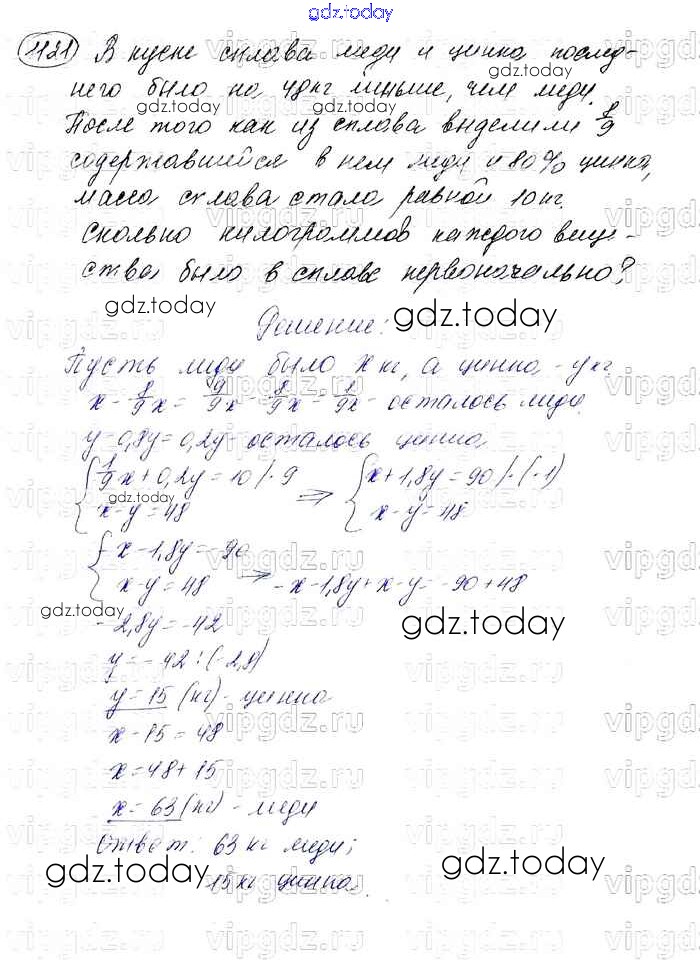 gdz.today
1121 В куске сплава меди и цинка послед-
него было на 48 кг меньше, чем меди.
После того как из сплава выделили 8/9
содержавшейся в нем меди и 80% цинка,
масса сплава стала равной 10 кг.
Сколько килограммов каждого веще-
ства было в сплаве первоначально?
Решение:
Пусть меди было x кг, а цинка - y кг.
x - 8/9x = 9/9x - 8/9x = 1/9x - осталось меди
y - 0,8y = 0,2y - осталось цинка
{ 1/9x + 0,2y = 10 /·9 ⇒ { x + 1,8y = 90 /·(-1)
x - y = 48 x - y = 48
{ - x - 1,8y = -90
x - y = 48 ⇒ - x - 1,8y + x - y = -90 + 48
- 2,8y = -42
y = -42 : (-2,8)
y = 15 (кг) - цинка
x - 15 = 48
x = 48 + 15
x = 63 (кг) - меди
Ответ: 63 кг меди;
15 кг цинка.